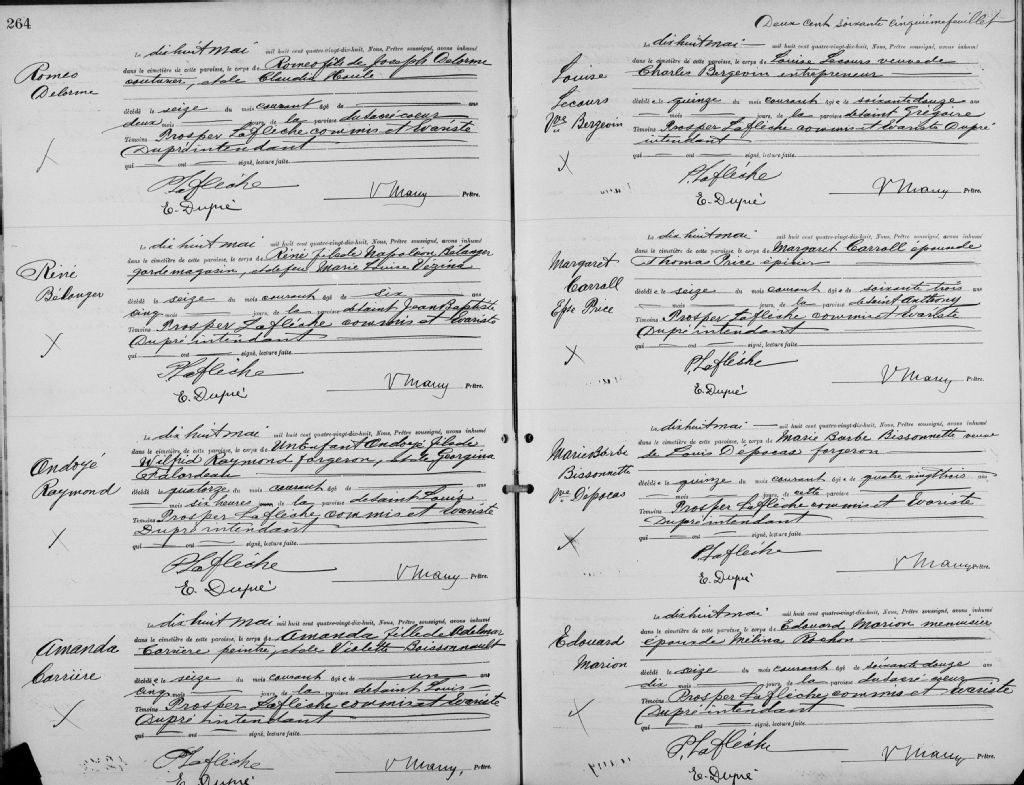 264
Romeo
Delorme
Le dix huit mai mil huit cent quatre-vingt-dix-huit, Nous, Prêtre soussigné, avons inhumé
dans le cimetière de cette paroisse, le corps de Romeo fils de Joseph Delorme
et de Claudia Houle
décédé le seize du mois courant âgé de ans
deux mois jours, de la paroisse du sacré coeur
Témoins Prosper Laflèche commis et Evariste
Dupré intendant
qui ont signé, lecture faite.
P. Laflèche
V Mauy Prêtre.
E. Dupré
Réné
Bélanger
Le dix huit mai mil huit cent quatre-vingt-dix-huit, Nous, Prêtre soussigné, avons inhumé
dans le cimetière de cette paroisse, le corps de Réné fils de Napoléon Bélanger
garde magasin, et de feu Marie Louise Vézina
décédé le seize du mois courant âgé de six ans
cinq mois jours, de la paroisse de saint Jean Baptiste
Témoins Prosper Laflèche commis et Evariste
Dupré intendant
qui ont signé, lecture faite.
P. Laflèche
V Mauy Prêtre.
E. Dupré
Ondoyé
Raymond
Le dix huit mai mil huit cent quatre-vingt-dix-huit, Nous, Prêtre soussigné, avons inhumé
dans le cimetière de cette paroisse, le corps de Un Enfant Ondoyé fils de
Wilfrid Raymond forgeron, et de Georgina
décédé le quatorze du mois courant âgé de ans
mois six heures de la paroisse de saint Louis
Témoins Prosper Laflèche commis et Evariste
Dupré intendant
qui ont signé, lecture faite.
P. Laflèche
V Mauy Prêtre.
E. Dupré
Amanda
Carrière
Le dix huit mai mil huit cent quatre-vingt-dix-huit, Nous, Prêtre soussigné, avons inhumé
dans le cimetière de cette paroisse, le corps de Amanda fille de Adelmar
Carriere peintre, et de Violette Boissonnault
décédée le seize du mois courant âgée de un ans
cinq mois jours, de la paroisse de saint Louis
Témoins Prosper Laflèche commis et Evariste
Dupré intendant
qui ont signé, lecture faite.
P. Laflèche
V Mauy, Prêtre.
E. Dupré
Deux cent soixante cinquième feuillet
Louise
Lecours
Vve Bergevin
Le dix huit mai mil huit cent quatre-vingt-dix-huit, Nous, Prêtre soussigné, avons inhumé
dans le cimetière de cette paroisse, le corps de Louise Lecours veuve de
Charles Bergevin entrepreneur
décédée le quinze du mois courant âgée de soixante douze ans
mois jours, de la paroisse de saint Grégoire
Témoins Prosper Laflèche commis et Evariste Dupré
intendant
qui ont signé, lecture faite.
P. Laflèche
V Mauy Prêtre.
E. Dupré
Margaret
Carroll
Epse Price
Le dix huit mai mil huit cent quatre-vingt-dix-huit, Nous, Prêtre soussigné, avons inhumé
dans le cimetière de cette paroisse, le corps de Margaret Carroll épouse de
Thomas Price épicier
décédée le seize du mois courant âgée de soixante trois ans
mois jours, de la paroisse de saint Anthony
Témoins Prosper Laflèche commis et Evariste
Dupré intendant
qui ont signé, lecture faite.
P. Laflèche
V Mauy Prêtre.
E. Dupré
Marie Barbe
Bissonnette
Vve Dépocas
Le dix huit mai mil huit cent quatre-vingt-dix-huit, Nous, Prêtre soussigné, avons inhumé
dans le cimetière de cette paroisse, le corps de Marie Barbe Bissonnette veuve
de Louis Dépocas forgeron
décédée le quinze du mois courant âgée de quatre vingt trois ans
mois jours, de cette paroisse
Témoins Prosper Laflèche commis et Evariste
Dupré intendant
qui ont signé, lecture faite.
P. Laflèche
V Mauy Prêtre.
E. Dupré
Edouard
Marion
Le dix huit mai mil huit cent quatre-vingt-dix-huit, Nous, Prêtre soussigné, avons inhumé
dans le cimetière de cette paroisse, le corps de Edouard Marion menuisier
époux de Mélina Rochon
décédé le seize du mois courant âgé de soixante douze ans
dix mois jours, de la paroisse du sacré coeur
Témoins Prosper Laflèche, commis et Evariste
Dupré intendant
qui ont signé, lecture faite.
P. Laflèche
V Mauy Prêtre.
E. Dupré